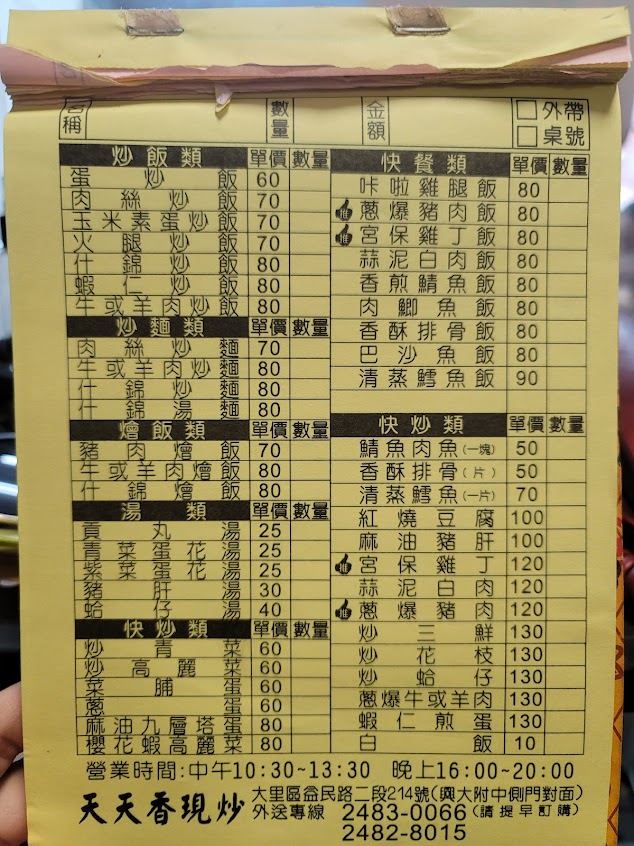 名稱 數量 金額 外帶
桌號
炒飯類 單價 數量
蛋炒飯 60
肉絲炒飯 70
玉米素蛋炒飯 70
火腿炒飯 70
什錦炒飯 80
蝦仁炒飯 80
牛或羊肉炒飯 80
炒麵類 單價 數量
肉絲炒麵 70
牛或羊肉炒麵 80
什錦炒麵 80
什錦湯麵 80
燴飯類 單價 數量
豬肉燴飯 70
牛或羊肉燴飯 80
什錦燴飯 80
湯類 單價 數量
貢丸湯 25
青菜蛋花湯 25
紫菜蛋花湯 25
豬肝湯 30
蛤仔湯 40
快炒類 單價 數量
炒青菜 60
炒高麗菜 60
菜脯蛋 60
蔥蛋 60
麻油九層塔蛋 80
櫻花蝦高麗菜 80
快餐類 單價 數量
咔啦雞腿飯 80
推 蔥爆豬肉飯 80
推 宮保雞丁飯 80
蒜泥白肉飯 80
香煎鯖魚飯 80
肉鯽魚飯 80
香酥排骨飯 80
巴沙魚飯 80
清蒸鱈魚飯 90
快炒類 單價 數量
鯖魚肉魚(一塊) 50
香酥排骨(片) 50
清蒸鱈魚(一片) 70
紅燒豆腐 100
麻油豬肝 100
推 宮保雞丁 120
蒜泥白肉 120
推 蔥爆豬肉 120
炒三鮮 130
炒花枝 130
炒蛤仔 130
蔥爆牛或羊肉 130
蝦仁煎蛋 130
白飯 10
營業時間:中午10:30~13:30 晚上16:00~20:00
天天香現炒
大里區益民路二段214號(興大附中側門對面)
外送專線 2483-0066 (請提早訂購)
2482-8015